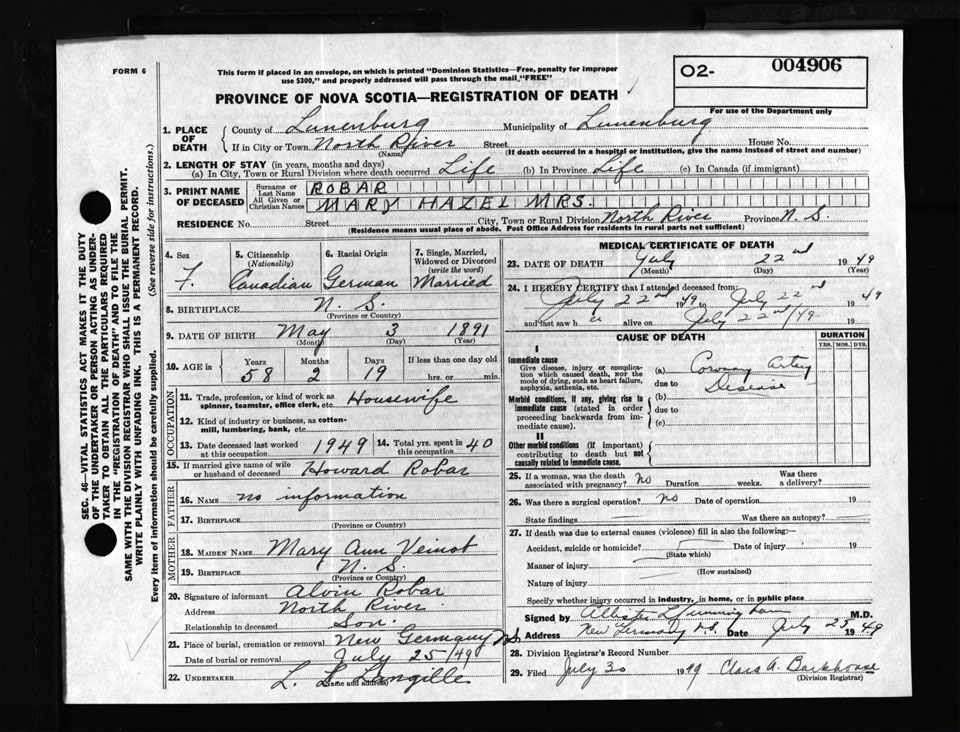 FORM 6
This form if placed in an envelope, on which is printed "Dominion Statistics—Free, penalty for improper
use $300," and properly addressed will pass through the mail "FREE"
O2- 004906
For use of the Department only
PROVINCE OF NOVA SCOTIA—REGISTRATION OF DEATH
1. PLACE OF DEATH
County of Lunenburg Municipality of Lunenburg
If in City or Town North River Street House No.
(Name) (If death occurred in a hospital or institution, give the name instead of street and number)
2. LENGTH OF STAY (in years, months and days)
(a) In City, Town or Rural Division where death occurred Life (b) In Province Life (c) In Canada (if immigrant)
3. PRINT NAME OF DECEASED
Surname or Last Name ROBAR
All Given or Christian Names MARY HAZEL MRS.
RESIDENCE No. Street City, Town or Rural Division North River Province N. S.
(Residence means usual place of abode. Post Office Address for residents in rural parts not sufficient)
4. Sex F.
5. Citizenship (Nationality) Canadian
6. Racial Origin German
7. Single, Married, Widowed or Divorced (write the word) Married
8. BIRTHPLACE N. S.
(Province or County)
9. DATE OF BIRTH May 3 1891
(Month) (Day) (Year)
10. AGE in Years 58 Months 2 Days 19 If less than one day old hrs. or min.
OCCUPATION
11. Trade, profession, or kind of work as spinner, teamster, office clerk, etc. Housewife
12. Kind of industry or business, as cotton-mill, lumbering, bank, etc.
13. Date deceased last worked at this occupation 1949
14. Total yrs. spent in this occupation 40
15. If married give name of wife or husband of deceased Howard Robar
FATHER
16. Name no information
17. Birthplace
(Province or Country)
MOTHER
18. Maiden Name Mary Ann Veinot
19. Birthplace N. S.
(Province or Country)
20. Signature of informant Alvin Robar
Address North River
Relationship to deceased Son.
21. Place of burial, cremation or removal New Germany N.S.
Date of burial or removal July 25/49
22. Undertaker L. L. Langille
(Name and address)
MEDICAL CERTIFICATE OF DEATH
23. DATE OF DEATH July 22nd 1949
(Month) (Day) (Year)
24. I HEREBY CERTIFY that I attended deceased from:
July 22nd 49 to July 22nd 1949
and last saw h er alive on July 22nd/49. 19
CAUSE OF DEATH
DURATION
YRS. MOS. DYS.
I
Immediate cause
Give disease, injury or complication which caused death, not the mode of dying, such as heart failure, asphyxia, asthenia, etc.
(a) Artery
due to Disease
Morbid conditions, if any, giving rise to immediate cause (stated in order proceeding backwards from immediate cause).
(b)
due to
(c)
II
Other morbid conditions (if important) contributing to death but not causally related to immediate cause.
25. If a woman, was the death associated with pregnancy? No Duration weeks. Was there a delivery?
26. Was there a surgical operation? No Date of operation 19
State findings Was there an autopsy?
27. If death was due to external causes (violence) fill in also the following:—
Accident, suicide or homicide? Date of injury 19
(State which)
Manner of injury
(How sustained)
Nature of injury
Specify whether injury occurred in industry, in home, or in public place
Signed by M.D.
Address New Germany N.S. Date July 25 1949
28. Division Registrar's Record Number
29. Filed July 30 1949 Clara A. Barkhouse
(Division Registrar)
SEC. 46—VITAL STATISTICS ACT MAKES IT THE DUTY
OF THE UNDERTAKER OR PERSON ACTING AS UNDER-
TAKER TO OBTAIN ALL THE PARTICULARS REQUIRED
IN THE "REGISTRATION OF DEATH" AND TO FILE THE
SAME WITH THE DIVISION REGISTRAR WHO SHALL ISSUE THE BURIAL PERMIT.
WRITE PLAINLY WITH UNFADING INK. THIS IS A PERMANENT RECORD.
Every item of information should be carefully supplied. (See reverse side for instructions.)